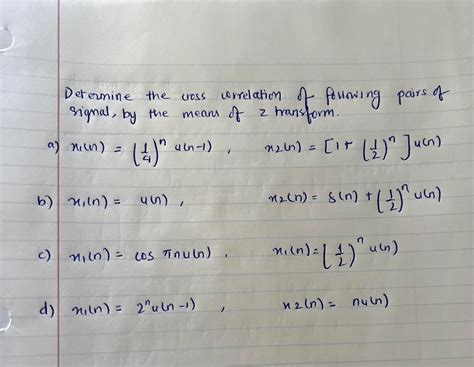 Determine the cross correlation of following pairs of
signal, by the means of z transform.
a) x₁(n) = (1/4)ⁿ u(n-1) , x2(n) = [1+ (1/2)ⁿ ] u(n)
b) x₁(n) = u(n) , x2(n) = δ(n) + (1/2)ⁿ u(n)
c) x₁(n) = cos πn u(n) . x₁(n) = (1/2)ⁿ u(n)
d) x₁(n) = 2ⁿ u(n-1) , x2(n) = nu(n)